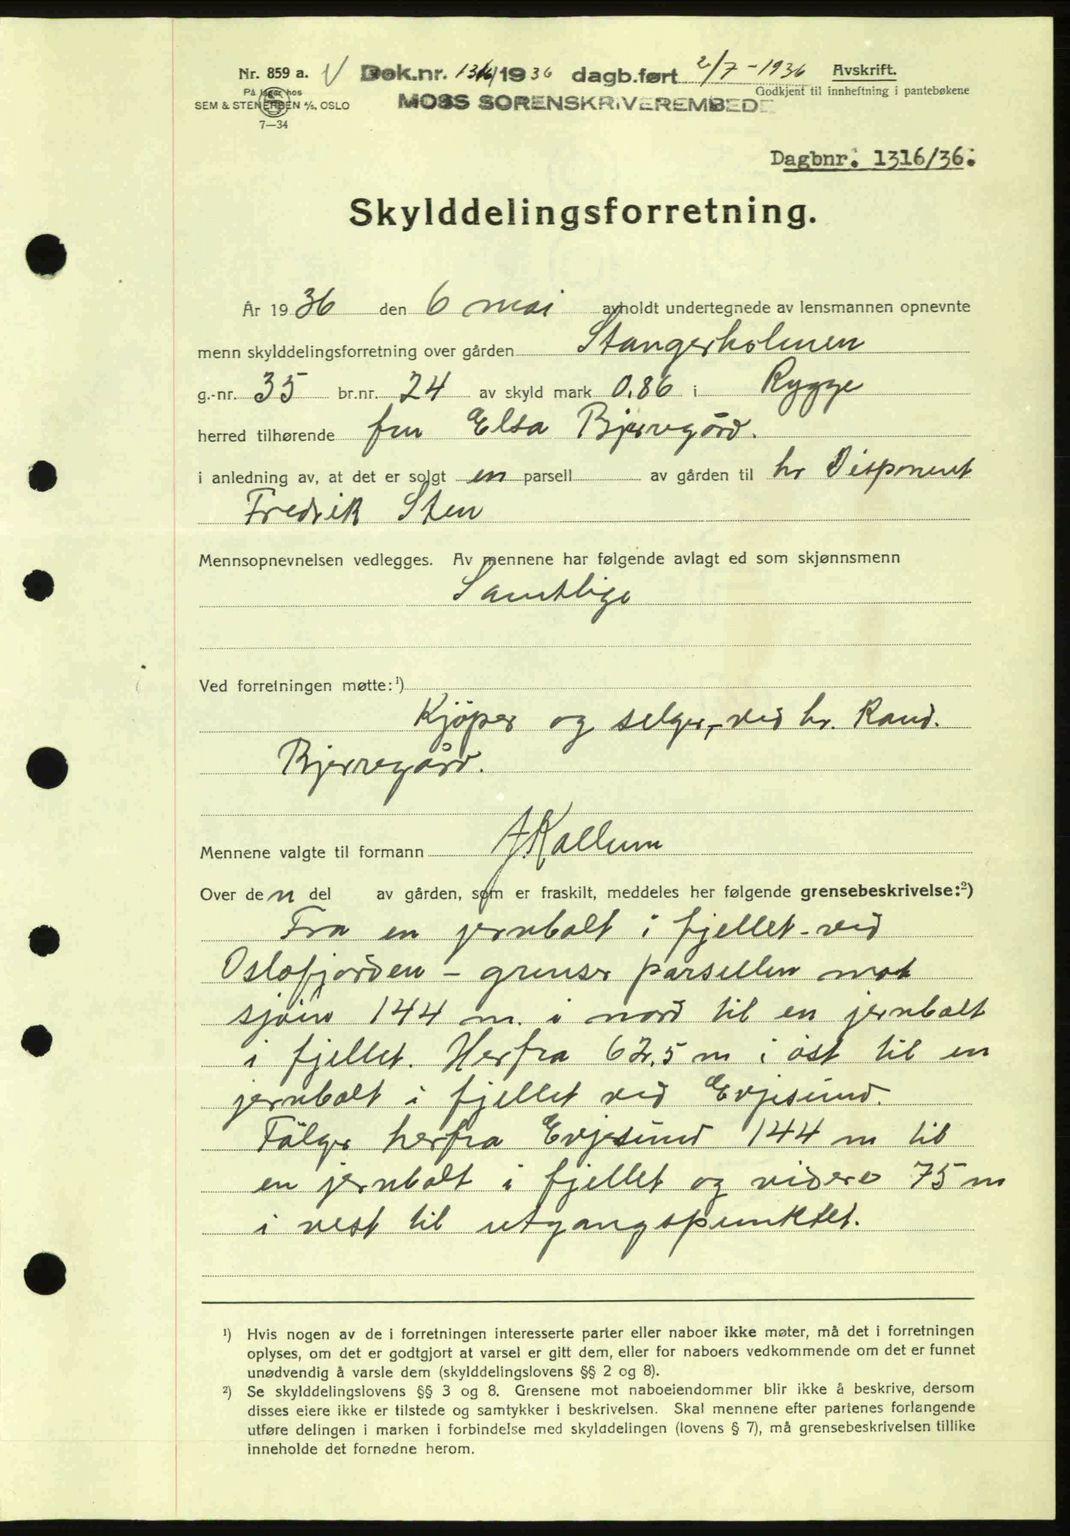 Nr. 859 a. V Dok.nr. 1316/1936 dagb.ført 2/7-1936 Avskrift.
På lager hos
SEM & STENERSEN A/S, OSLO
7—34
MOSS SORENSKRIVEREMBEDE
Godkjent til innheftning i pantebøkene
Dagbnr: 1316/36:
Skylddelingsforretning.
År 1936 den 6 mai avholdt undertegnede av lensmannen opnevnte
menn skylddelingsforretning over gården Stangerholmen
g.-nr. 35 br.nr. 24 av skyld mark 0.86 i Rygge
herred tilhørende fru Elsa Bjerregård.
i anledning av, at det er solgt en parsell av gården til hr Disponent
Fredrik Sten
Mennsopnevnelsen vedlegges. Av mennene har følgende avlagt ed som skjønnsmenn
Samtlige
Ved forretningen møtte:¹)
Kjöper og selger, ved hr. Rand.
Bjerregård.
Mennene valgte til formann J. Kallum
Over den del av gården, som er fraskilt, meddeles her følgende grensebeskrivelse:²)
Fra en jernbolt i fjellet ved
Oslofjorden – grenser parsellen mot
sjöen 144 m. i nord til en jernbolt
i fjellet. Herfra 62,5 m i öst til en
jernbolt i fjellet ved Evjesund.
Fölger herfra Evjesund 144 m til
en jernbolt i fjellet og videre 75 m
i vest til utgangspunktet.
¹) Hvis nogen av de i forretningen interesserte parter eller naboer ikke møter, må det i forretningen
oplyses, om det er godtgjort at varsel er gitt dem, eller for naboers vedkommende om det er funnet
unødvendig å varsle dem (skylddelingslovens §§ 2 og 8).
²) Se skylddelingslovens §§ 3 og 8. Grensene mot naboeiendommer blir ikke å beskrive, dersom
disses eiere ikke er tilstede og samtykker i beskrivelsen. Skal mennene efter partenes forlangende
utføre delingen i marken i forbindelse med skylddelingen (lovens § 7), må grensebeskrivelsen tillike
inneholde det fornødne herom.